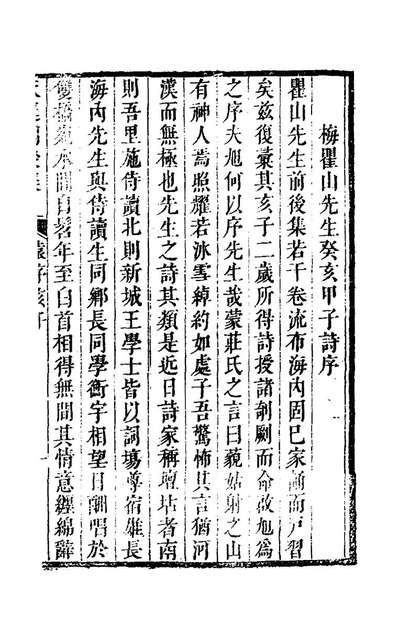 梅瞿山先生癸亥甲子詩序
瞿山先生前後集若干卷流布海內固已家誦而戶習
矣茲復彙其亥子二歲所得詩授諸剞劂而命啟旭爲
之序夫旭何以序先生哉蒙莊氏之言曰藐姑射之山
有神人焉照耀若冰雪綽約如處子吾驚怖其言猶河
漢而無極也先生之詩其類是近日詩家稱壇坫者南
則吾里施侍讀北則新城王學士皆以詞塲尊宿雄長
海內先生與侍讀生同鄉長同學衡宇相望日酬唱於
雙谿剡水間自髫年至白首相得無間其情意纏綿辭